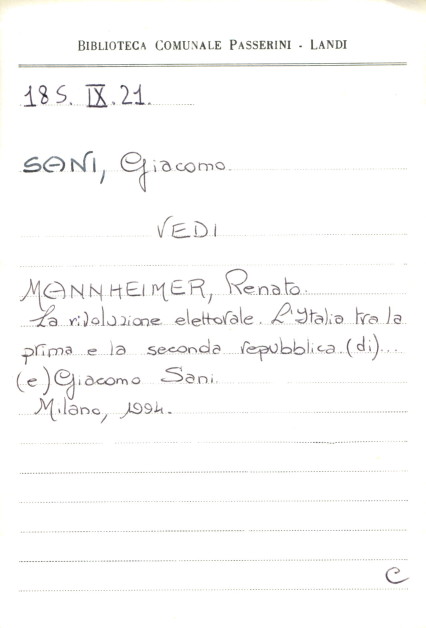 BIBLIOTECA COMUNALE PASSERINI - LANDI
18 S. IX. 21.
SANI, Giacomo.
VEDI
MANNHEIMER, Renato.
La rivoluzione elettorale. L'Italia tra la
prima e la seconda repubblica. (di)...
(e) Giacomo Sani.
Milano, 1994.
C